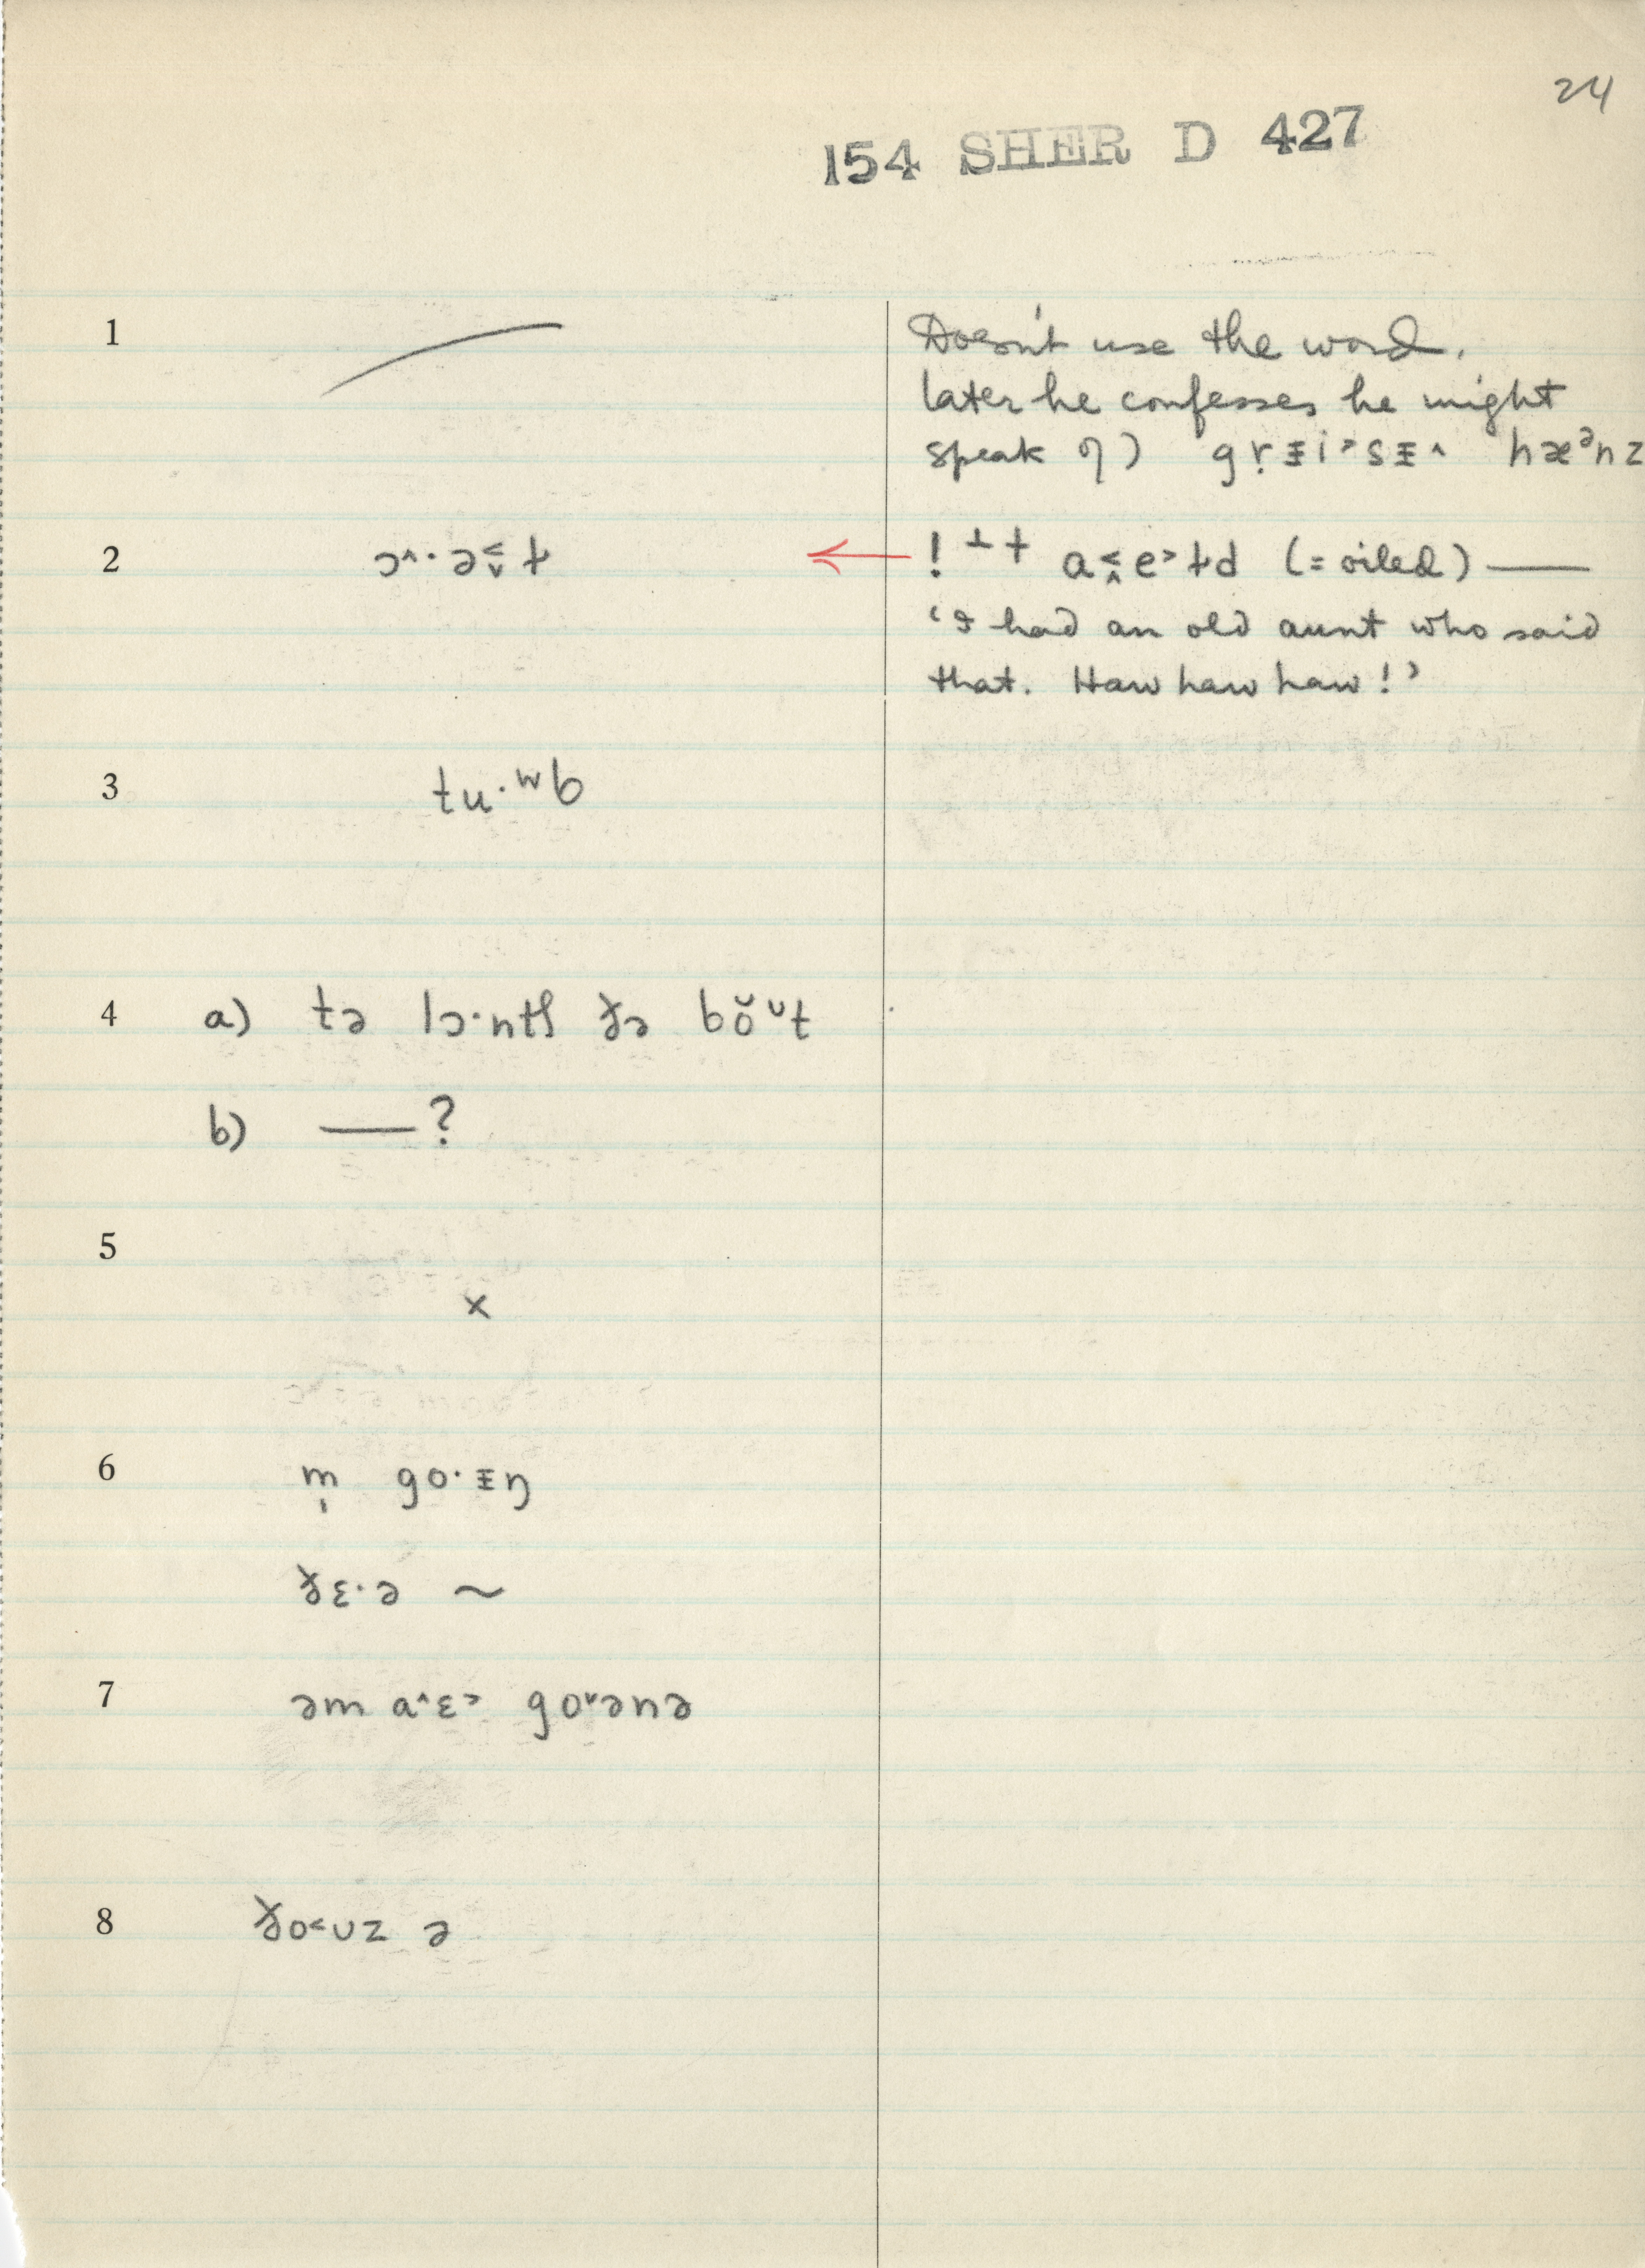 24
154 SHER D 427
1 Doesn't use the word.
later he confesses he might
speak of) gr̩ᵻi˃sᵻ˄ hæᵊnz
2 ɔ˄·ə˂˅ɫ ← ! ⊥ + a˂˄e˃ɫd (= oiled) —
‘I had an old aunt who said
that. Haw haw haw!’
3 tu·ʷb
4 a) tə lɔ·ntʃ ðə bŏ̞ᶷt
b) —?
5 ×
6 m̩ go·ᵻŋ
ðɛ·ə ~
7 əm a˄ɛ˃ go˅ənə
8 ðo˂ʊz ə